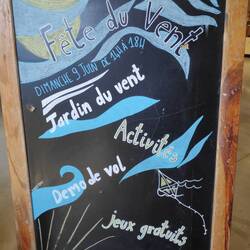 Fête du Vent
DIMANCHE 9 JUIN DE 14H À 18H
Jardin du vent
Activités
Demo de vol
jeux gratuits